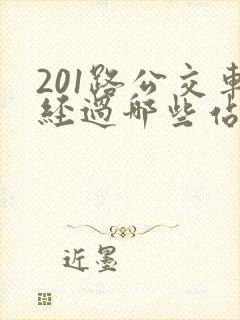 201路公交車
經過哪些佔
近墨